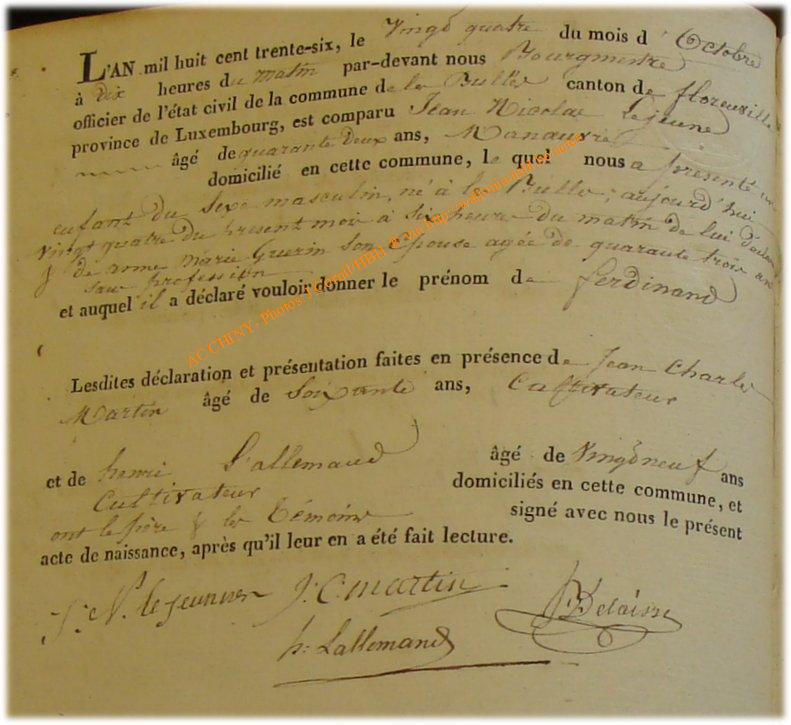 L'AN mil huit cent trente-six, le Vingt quatre du mois d' Octobre
à dix heures du matin par-devant nous Bourgmestre
officier de l'état civil de la commune de les Bulles canton de florenville
province de Luxembourg, est comparu Jean Nicolas Lejeune
âgé de quarante Deux ans, Manœuvre
domicilié en cette commune, le quel nous a présenté un
enfant du Sexe masculin, né à les Bulles, aujourd'hui
vingt quatre du présent mois à Six heures du matin de lui déclarant
& de anne marie Guerin Son épouse agée de quarante trois ans
Sans profession
et auquel il a déclaré vouloir donner le prénom de ferdinand
Lesdites déclaration et présentation faites en présence de Jean Charles
Martin âgé de Soixante ans, Cultivateur
et de henri Lallemand âgé de Vingt neuf ans
Cultivateur domiciliés en cette commune, et
ont le père & les témoins signé avec nous le présent
acte de naissance, après qu'il leur en a été fait lecture.
J. N. lejeune J. C. martin
h. Lallemand
AC CHINY - Photos